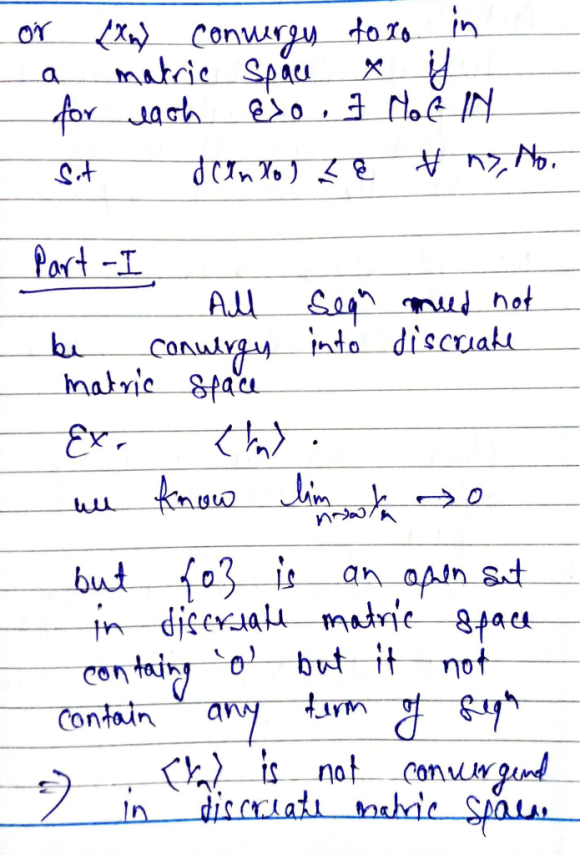 or <xn> converges to x0 in
a matric space x if
for each ε>0, ∃ No ∈ IN
s.t d(xn x0) ≤ ε ∀ n≥, No.
Part-I
All seqⁿ need not
be converges into discreate
matric space
Ex. <1/n>.
we know lim n→∞ 1/n → 0
but {0} is an open set
in discreate matric space
containg '0' but it not
contain any term of seqⁿ
⇒ <1/n> is not convergend
in discreate matric space.